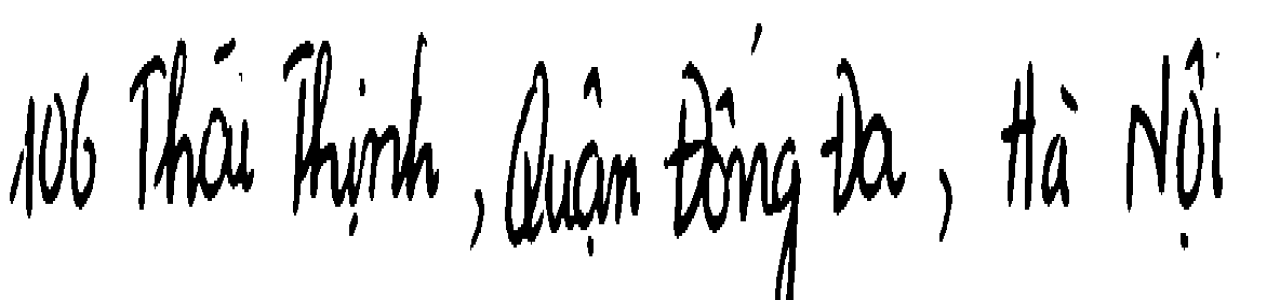 106 Thái Thịnh, Quận Đống Đa, Hà Nội